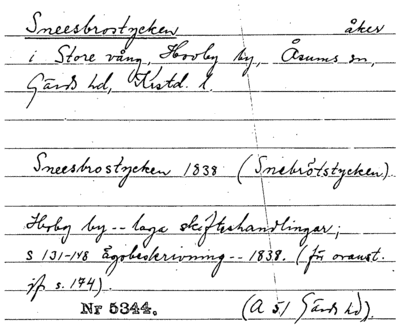 Sneesbrostycken åker
i Store vång, Hovby by, Åsums sn,
Gärds hd, Krstd. l.
Sneesbrostycken 1838 (Snebrötstycken)
Hoby by -- laga skifteshandlingar;
s 131-148 Egobeskrivning -- 1838. (för
jf s. 174).
Nr 5344. (A 51 Gärds hd).